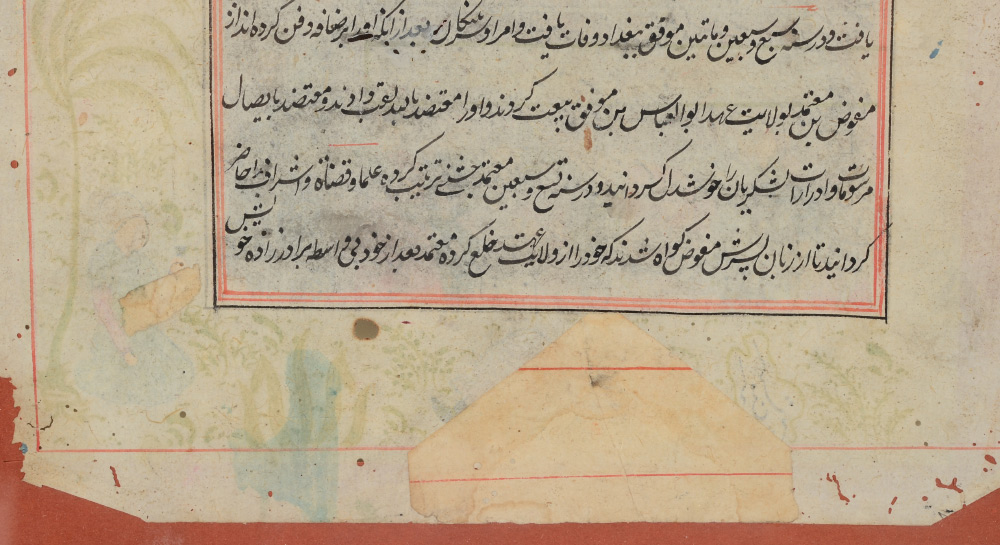 یافت و در سنه سبع و سبعین و مأتین موفق ببغداد وفات یافت و امراء لشکر بعد از آنکه او را برصافه دفن کرده بودند از
مفوض بن معتمد بولایت عهد ابو العباس بن موفق بیعت کردند و او را معتضد بالله لقب دادند و معتضد بایصال
مرسومات و ادرارات لشکریان را خوشدل گردانید و در سنه تسع و سبعین معتمد جشنی ترتیب کرده علما و قضاة و اشراف را حاضر
گردانید تا از زبان پسرش مفوض گواه شدند که خود را از ولایت عهد خلع کرده معتمد بعد از خود بی واسطه برادرزاده خویش